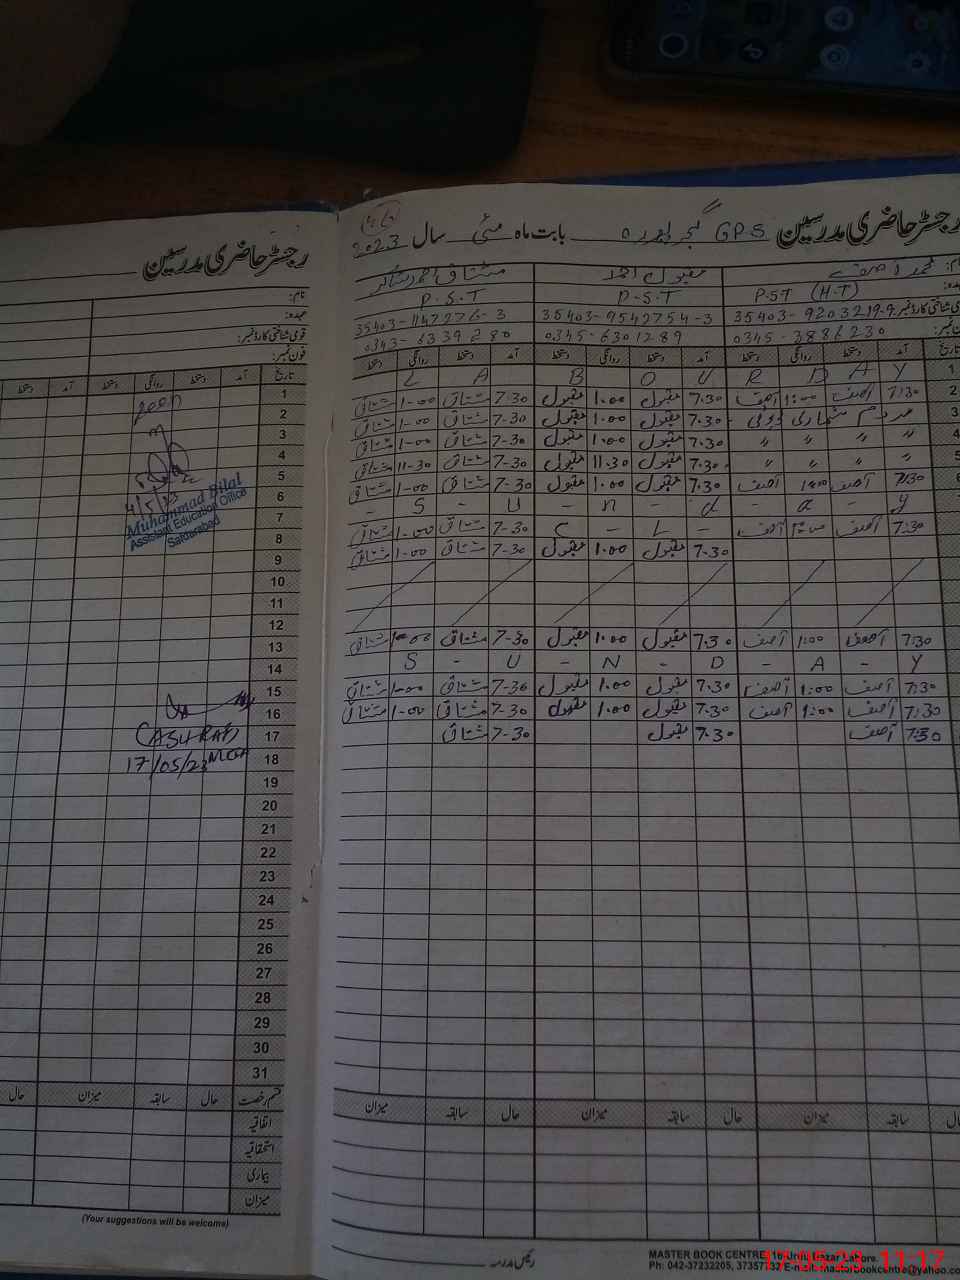 رجسٹر حاضری مدرسین
نام:
عہدہ:
قومی شناختی کارڈ نمبر:
فون نمبر:
تاریخ آمد دستخط روانگی دستخط آمد دستخط
1
2 Seen
3
4
5
6 4/5/23
7 Muhammad Bilal
8 Assistant Education Officer
9 Safdarabad
10
11
12
13
14
15
16
17 (ASHRAF)
18 17/05/23 MEA
19
20
21
22
23
24
25
26
27
28
29
30
31
قسم رخصت حال سابقہ میزان حال
اتفاقیہ
استحقاقیہ
بیماری
میزان
(Your suggestions will be welcome)
رجسٹر حاضری مدرسین GPS بابت ماہ مئی سال 2023
محمد آصف مقبول احمد مشتاق احمد شاکر
P.S.T (H.T) P.S.T P.S.T
قومی شناختی کارڈ نمبر 35403-9203219-9 35403-9542754-3 35403-1147276-3
0345-3886230 0345-6301289 0343-6339280
تاریخ آمد دستخط روانگی دستخط آمد دستخط روانگی دستخط آمد دستخط روانگی دستخط
1 L A B O U R D A Y
2 7:30 آصف 1:00 آصف 7.30 مقبول 1.00 مقبول 7-30 مشتاق 1-00 مشتاق
3 مردم شماری ڈیوٹی 7.30 مقبول 1.00 مقبول 7-30 مشتاق 1-00 مشتاق
4 〃 〃 〃 〃 7.30 مقبول 1.00 مقبول 7-30 مشتاق 1-00 مشتاق
5 〃 〃 〃 〃 7.30 مقبول 11.30 مقبول 7-30 مشتاق 11-30 مشتاق
6 7:30 آصف 1:00 آصف 7.30 مقبول 1.00 مقبول 7-30 مشتاق 1-00 مشتاق
- S - U - n - d - a - y
7:30 آصف آصف - L - C 7-30 مشتاق 1-00 مشتاق
7.30 مقبول 1.00 مقبول 7-30 مشتاق 1-00 مشتاق
7:30 آصف 1:00 آصف 7.30 مقبول 1.00 مقبول 7-30 مشتاق 1-00 مشتاق
S - U - N - D - A - Y
7:30 آصف 1:00 آصف 7.30 مقبول 1.00 مقبول 7-30 مشتاق 1-00 مشتاق
7:30 آصف 1:00 آصف 7.30 مقبول 1.00 مقبول 7-30 مشتاق 1-00 مشتاق
7:30 آصف 7.30 مقبول 7-30 مشتاق
حال سابقہ میزان حال سابقہ میزان حال سابقہ میزان
رئیس مدرسہ
MASTER BOOK CENTRE, 16-Urdu Bazar Lahore.
Ph: 042-37232205, 37357132 E-mail: masterbookcentre@yahoo.co
17-05-23 11:17